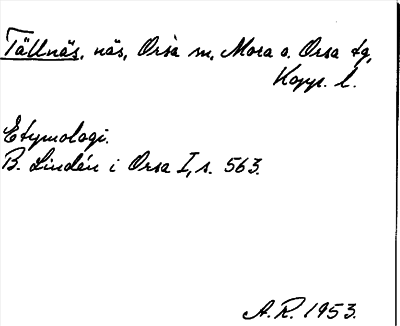 Tällnäs, näs, Orsa sn, Mora o. Orsa tg,
Kopp. l.
Etymologi.
B. Lindén i Orsa I, s. 563.
A.R. 1953.